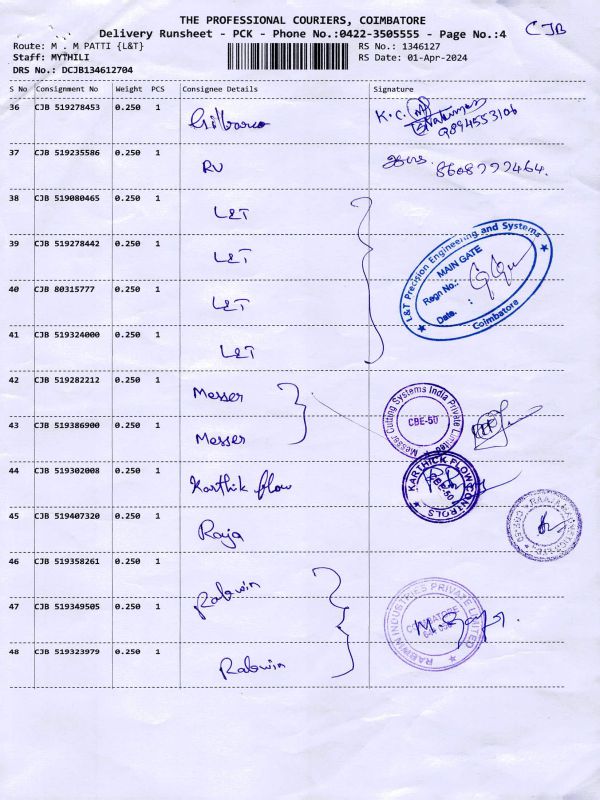 THE PROFESSIONAL COURIERS, COIMBATORE
Delivery Runsheet - PCK - Phone No.:0422-3505555 - Page No.:4
CJB
Route: M . M PATTI {L&T}
RS No.: 1346127
Staff: MYTHILI
RS Date: 01-Apr-2024
DRS No.: DCJB134612704
S No Consignment No Weight PCS Consignee Details Signature
36 CJB 519278453 0.250 1 Gilbarco K.C.
9894553106
37 CJB 519235586 0.250 1 RU 8608777464.
38 CJB 519080465 0.250 1 L&T
39 CJB 519278442 0.250 1 L&T
40 CJB 80315777 0.250 1 L&T
41 CJB 519324000 0.250 1 L&T
L&T Precision Engineering and Systems
MAIN GATE
Regn No.:
Date. :
Coimbatore
42 CJB 519282212 0.250 1 Messer
43 CJB 519386900 0.250 1 Messer
Messer Cutting Systems India Private Limited
CBE-50
44 CJB 519302008 0.250 1 Karthik flow
KARTHICK FLOW CONTROLS
CBE-50
45 CJB 519407320 0.250 1 Raja
46 CJB 519358261 0.250 1 Rabwin
47 CJB 519349505 0.250 1
RABWIN INDUSTRIES PRIVATE LIMITED
COIMBATORE
48 CJB 519323979 0.250 1 Rabwin